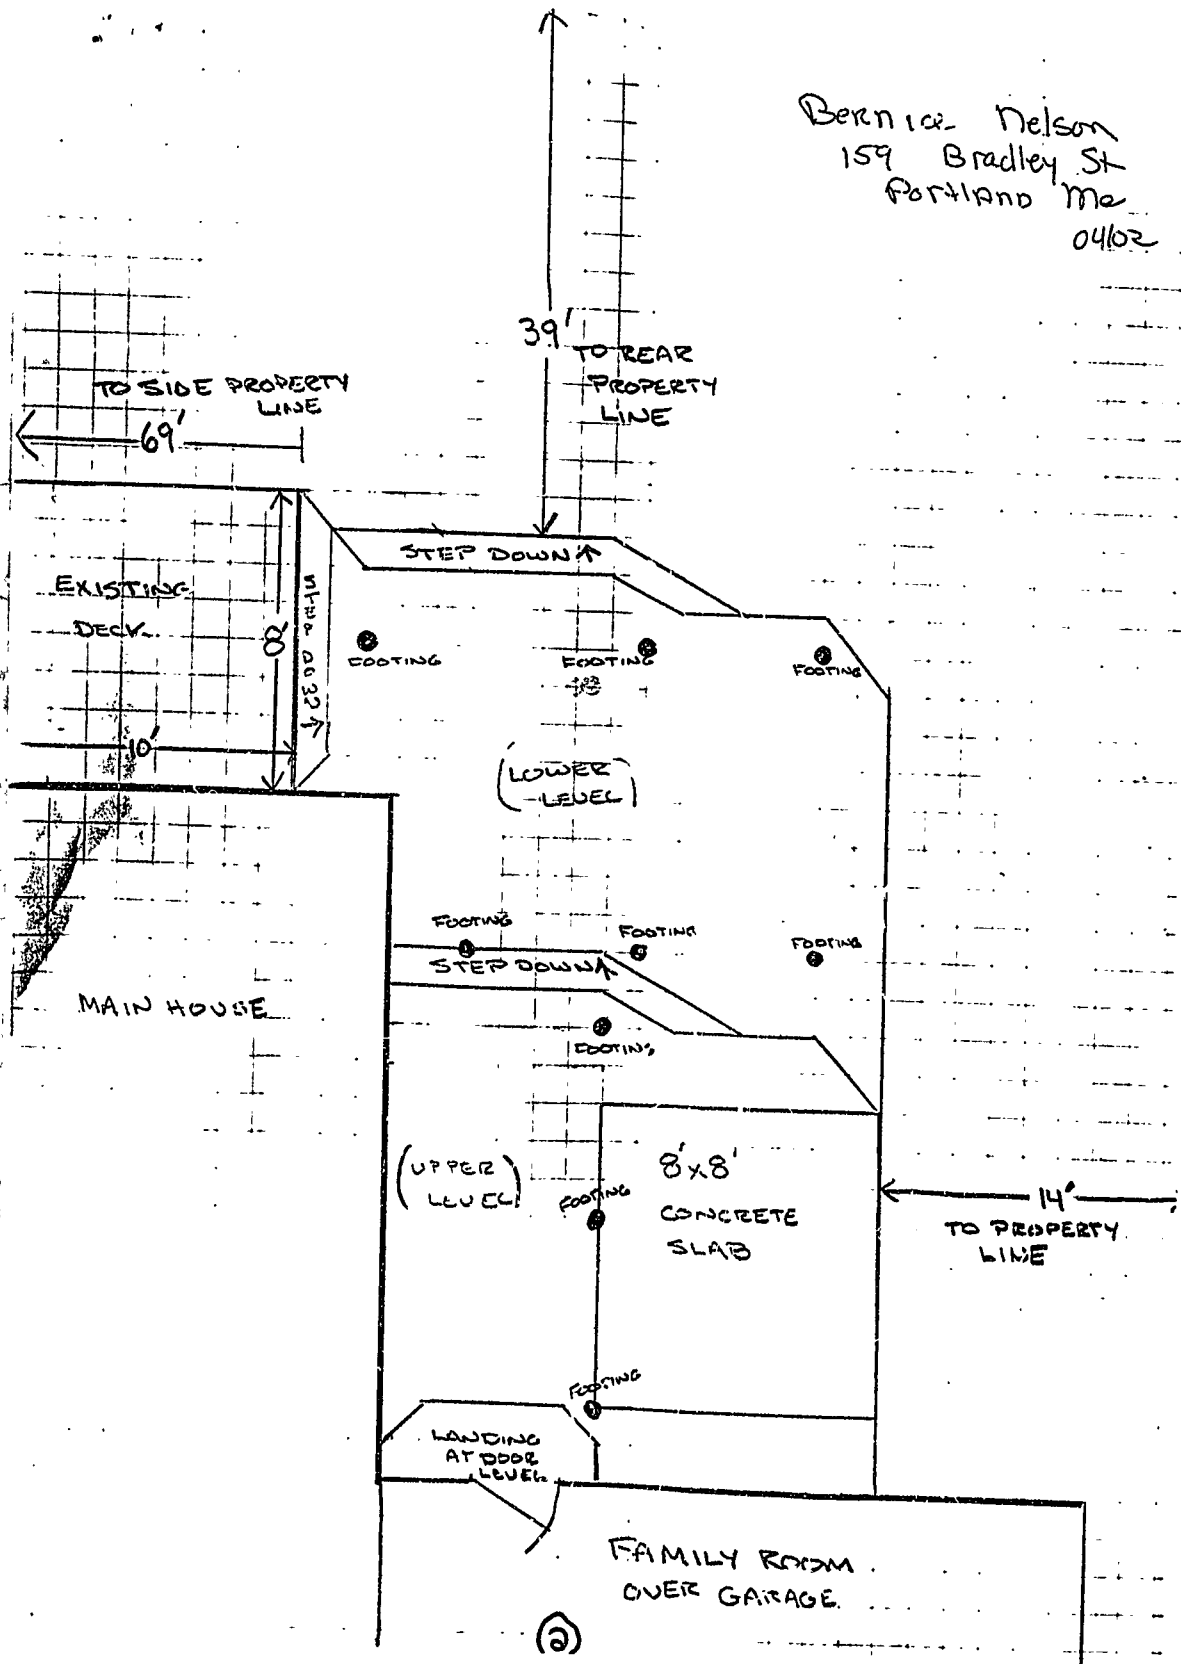 Bernice Nelson
159 Bradley St
Portland Me
04102
39'
TO REAR
PROPERTY
LINE
TO SIDE PROPERTY
LINE
69'
STEP DOWN
EXISTING
DECK
8'
10'
FOOTING
FOOTING
FOOTING
(LOWER
LEVEL)
FOOTING
FOOTING
FOOTING
STEP DOWN
MAIN HOUSE
FOOTING
(UPPER
LEVEL)
FOOTING
8'x8'
CONCRETE
SLAB
14'
TO PROPERTY
LINE
FOOTING
LANDING
AT DOOR
LEVEL
FAMILY ROOM
OVER GARAGE
2